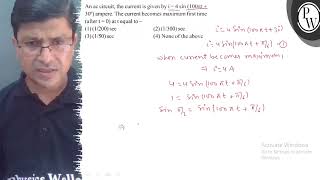 An ac circuit, the current is given by i = 4 sin (100πt +
30°) ampere. The current becomes maximum first time
(after t = 0) at t equal to –
(1) (1/200) sec (2) (1/300) sec
(3) (1/50) sec (4) None of the above
i = 4 Sin(100πt + 30)
i = 4 Sin(100πt + π/6)
when current becomes maximum,
⇒ i = 4 A
4 = 4 Sin(100πt + π/6)
1 = Sin(100πt + π/6)
Sin π/2 = Sin(100πt + π/6)
Activate Windows